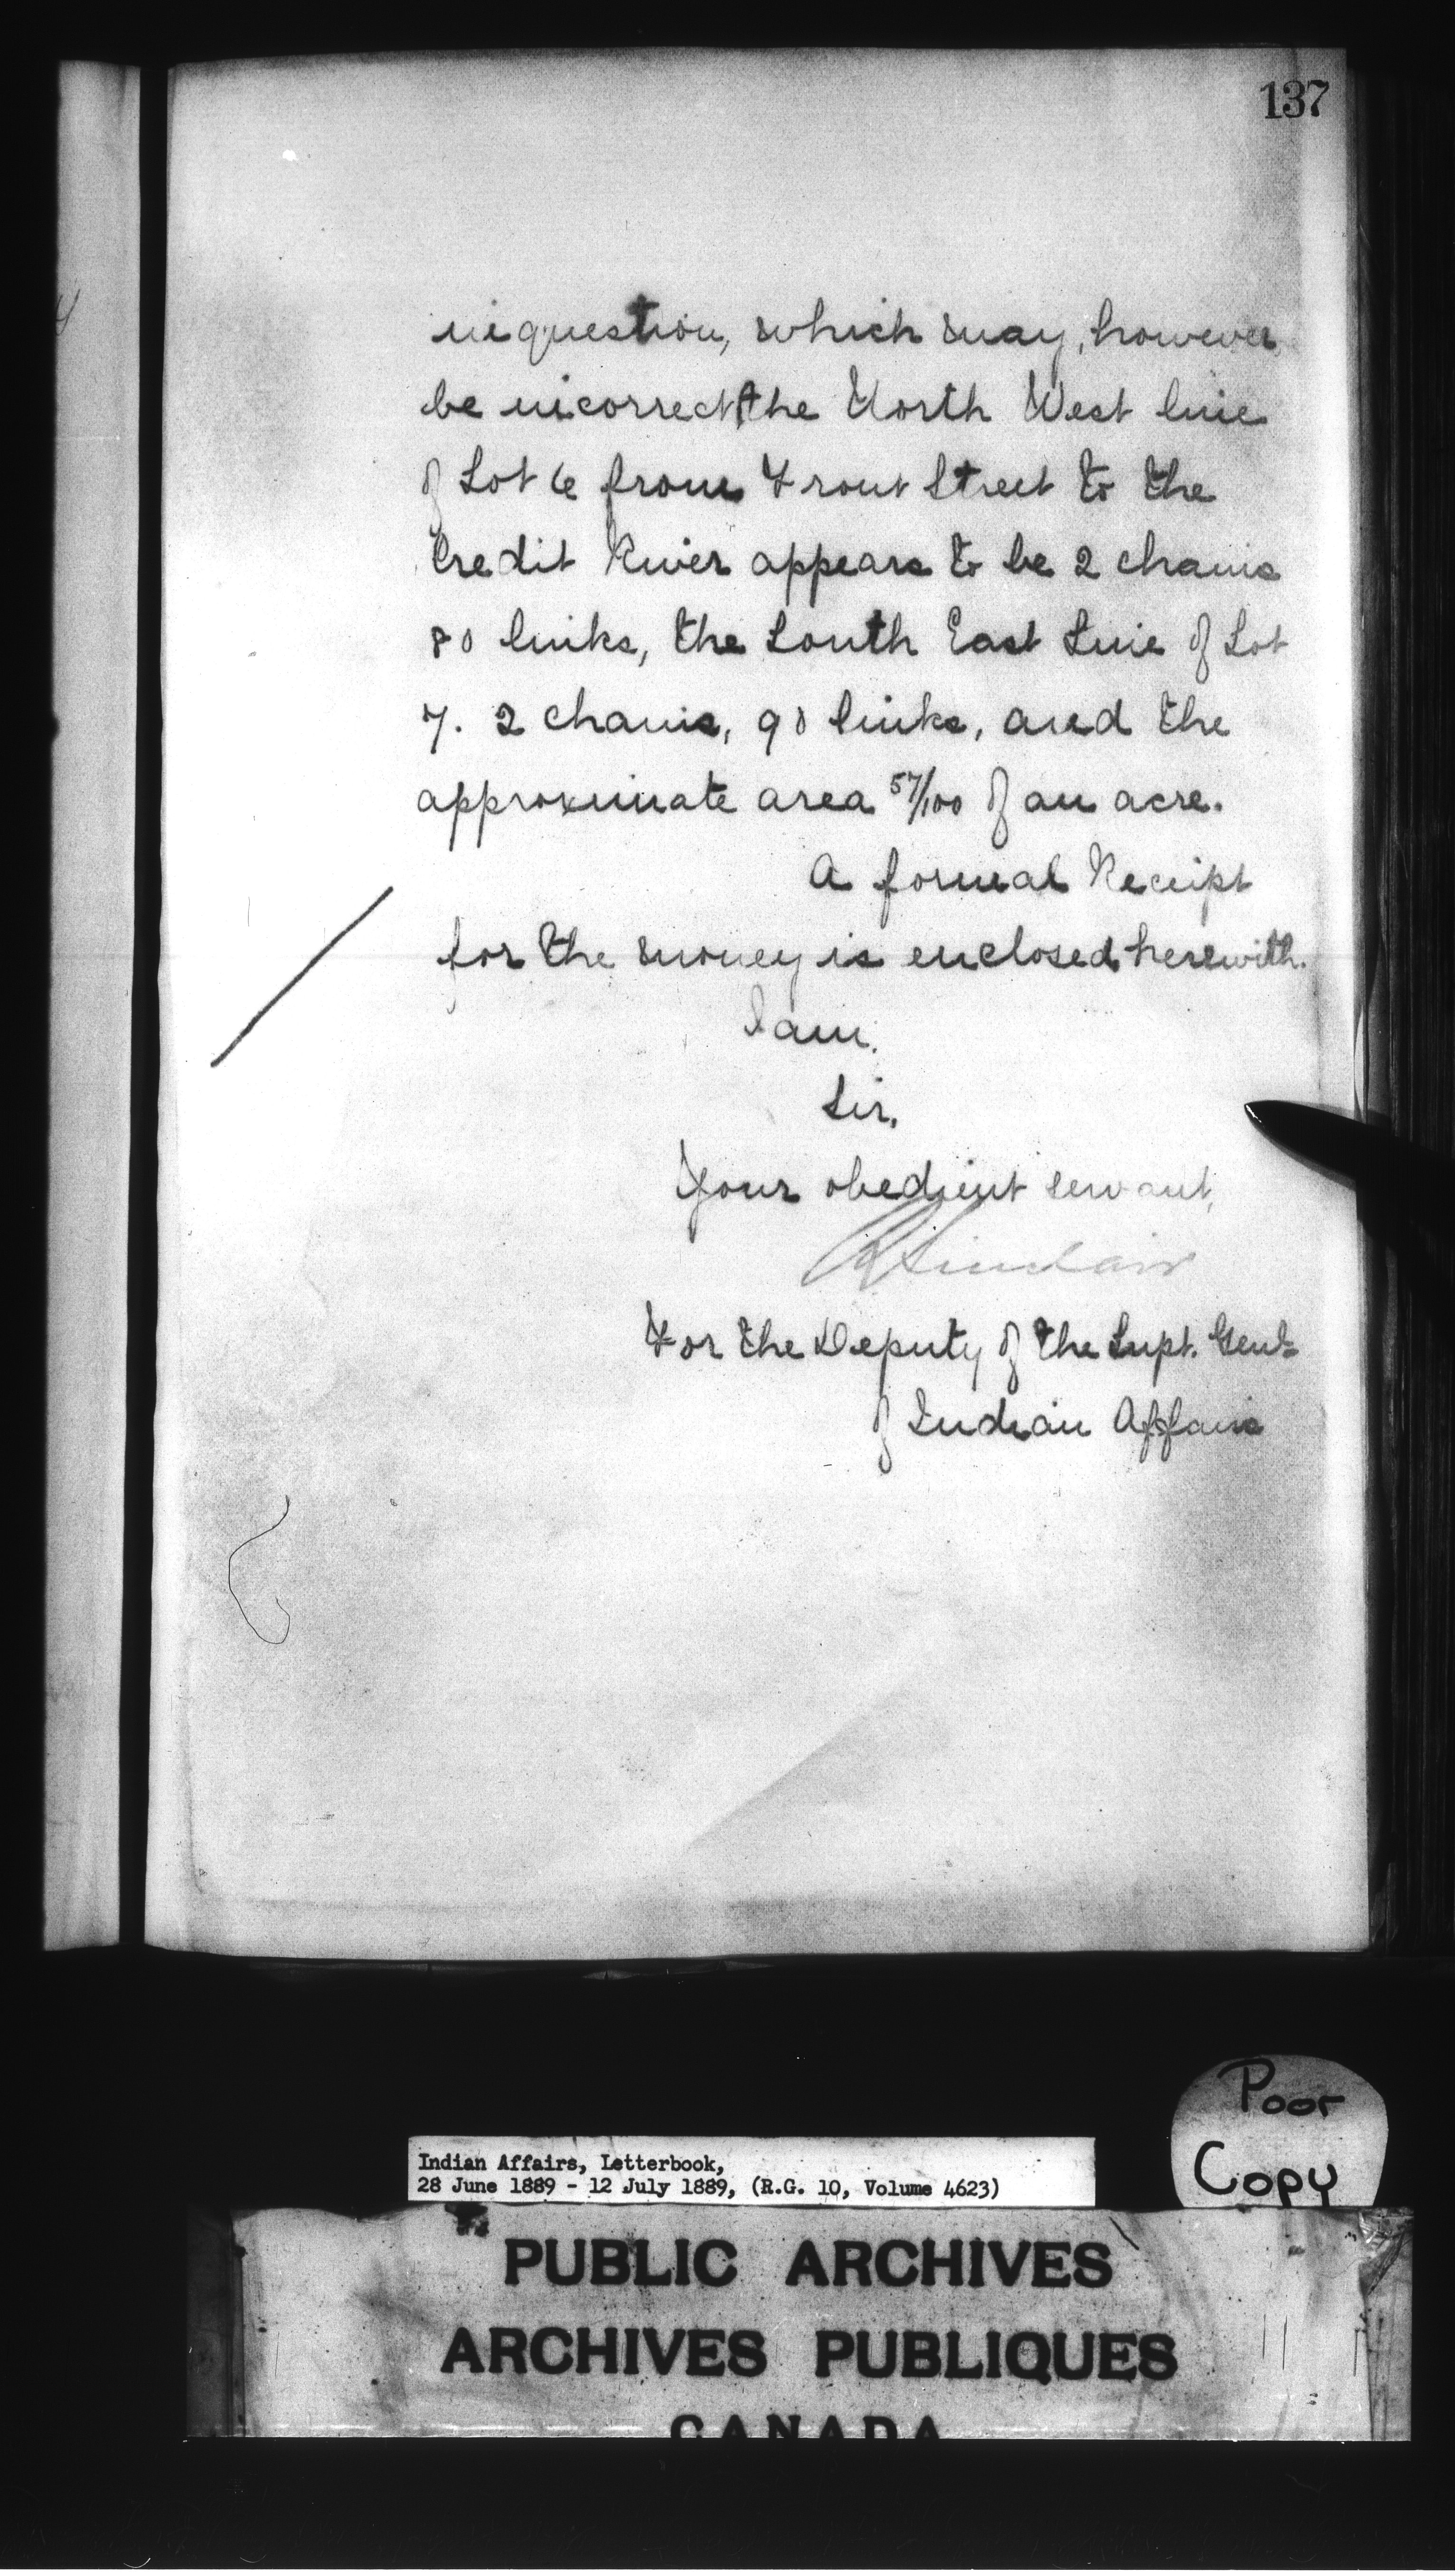 137
in question, which may, however,
be incorrect, the North West line
of Lot 6 from Front Street to the
Credit River appears to be 2 chains
80 links, the South East Line of Lot
7. 2 chains, 90 links, and the
approximate area 57/100 of an acre.
A formal Receipt
for the money is enclosed herewith.
I am.
Sir,
Your obedient servant,
R Sinclair
For the Deputy of the Supt. Genl.
of Indian Affairs
Poor
Copy
Indian Affairs, Letterbook,
28 June 1889 - 12 July 1889, (R.G. 10, Volume 4623)
PUBLIC ARCHIVES
ARCHIVES PUBLIQUES
CANADA